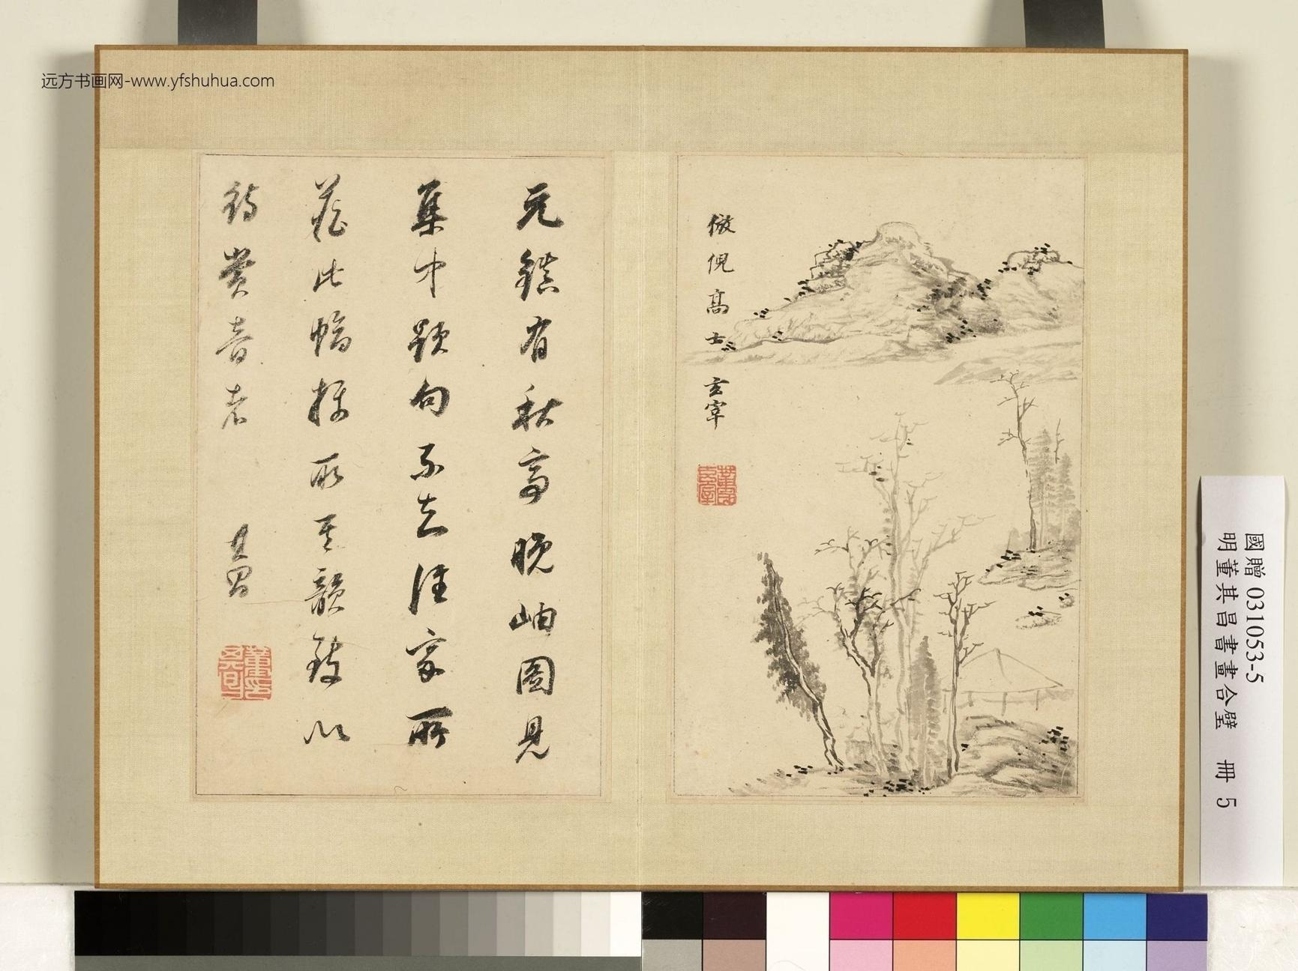 远方书画网-www.yfshuhua.com
倣倪高士 玄宰
董其昌
元鎮有秋亭晚岫圖見
集中題句不知誰家所
藏此幅擬所其韻致以
待賞音者
其昌
國贈 031053-5
明董其昌書畫合璧 冊 5